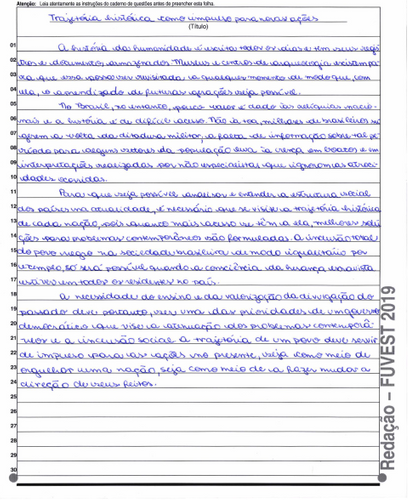 Atenção: Leia atentamente as instruções do caderno de questões antes de preencher esta folha.
Trajetória histórica como impulso para novas ações
(Título)
01 A história da humanidade é escrita todos os dias e tem seus regis
02 tros e documentos armazenados. Museus e centros de arqueologia existem pa
03 ra que essa possa ser revisitada a qualquer momento de modo que, com
04 ela, o aprendizado de futuras gerações seja possível.
05 No Brasil, no entanto, pouco valor é dado às relíquias nacio
06 nais e a história é de difícil acesso. Não à toa, milhares de brasileiros su
07 gerem a volta da ditadura militar, a falta de informação sobre tal pe
08 ríodo para alguns setores da população leva à crença em boatos e em
09 interpretações realizadas por não especialistas que ignoram as atroci
10 dades ocorridas.
11 Para que seja possível analisar e entender a estrutura social
12 dos países na atualidade, é necessário que se visite a trajetória histórica
13 de cada nação, pois quanto mais acesso se têm a ela, melhores solu
14 ções para problemas contemporâneos são formuladas. A inclusão total
15 do povo negro na sociedade brasileira de modo igualitário por
16 exemplo, só será possível quando a consciência da herança escravista
17 estiver em todos os residentes no país.
18 A necessidade do ensino e da valorização da divulgação do
19 passado deve portanto, ser uma das prioridades de um governo
20 democrático que vise a atenuação dos problemas contemporâ
21 neos e a inclusão social. A trajetória de um povo deve servir
22 de impulso para as ações no presente, seja como meio de
23 orgulhar uma nação, seja como meio de a fazer mudar a
24 direção de seus feitos.
25
26
27
28
29
30
Redação – FUVEST 2019